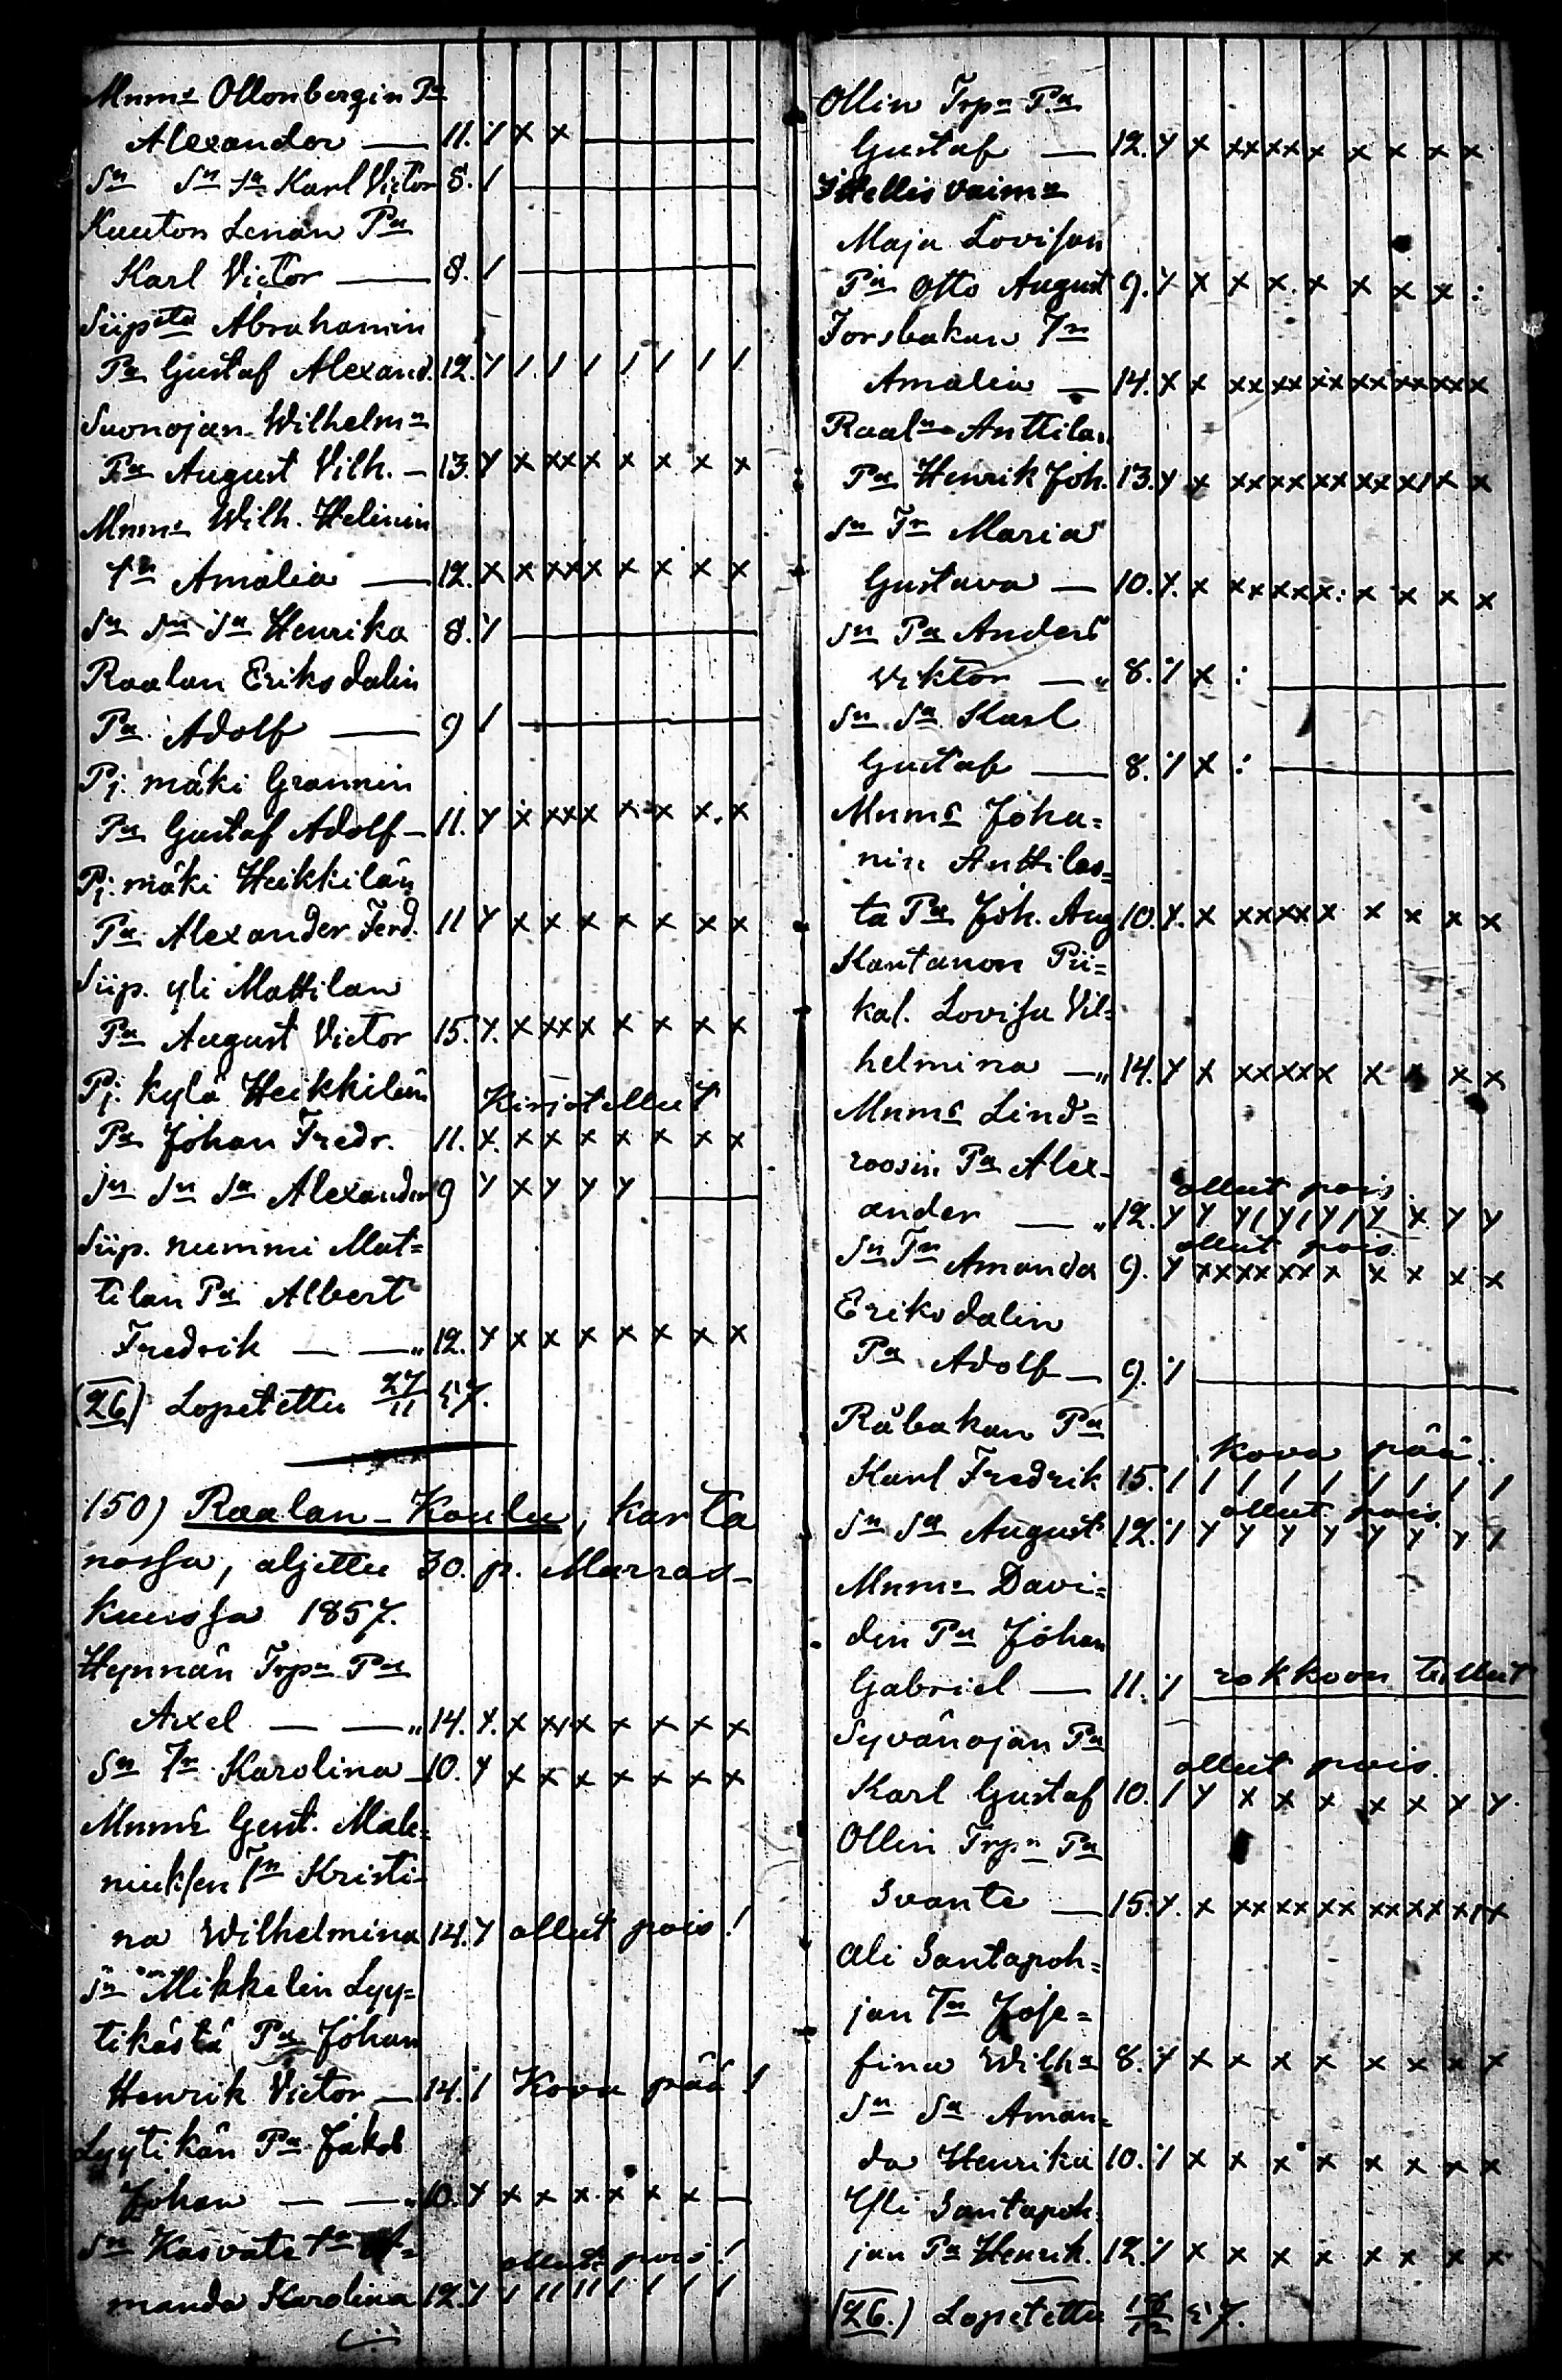 Mnms Ollonbergin Pa
Alexander — 11. y x x —
Sn Sn Sa Karl Victor 8. / —
Kuuton Lenan Pa
Karl Victor — 8. / —
Siipsta Abrahamin
Pa Gustaf Alexand. 12. y / / / / / / /
Suonojan Wilhelmn
Pa August Vilh. — 13. y x xx x x x x x
Mnms Wilh. Helinin
Tn Amalia — 12. x x xxx x x x x
Sn Sn Sa Henrika 8. y —
Raalan Eriksdalin
Pa Adolf — 9 / —
Pj. mäki Grannin
Pa Gustaf Adolf — 11. y x xxx x x x. x
Pj. mäki Heikkilän
Pa Alexander Ferd. 11 y x x x x x x x
Siip. yli Mattilan
Pa August Victor 15. y. x xx x x x x x
Pj. kylä Heikkilän Kirjotellut
Pa Johan Fredr. 11. x. x x x x x x x
Sn Sn Sa Alexander 9 y x y y y —
Siip. nummi Mat=
tilan Pa Albert
Fredrik — — „ 12. y x x x x x x x
(26) Lopetettu 27/11 57.
150) Raalan - Koulu, karta
nossa, aljettu 30. p. Marras-
kuussa 1857.
Hynnän Trpn Pa
Axel — — „ 14. y. x xx x x x x x
Sn Tn Karolina — 10. y x x x x x x x
Mnms Gust. Mak=
niuksen Tn Kristi-
na Wilhelmina 14. y ollut pois!
Sn Mikkelin Lyy=
tikästä Pa Johan
Henrik Victor — 14. / Kova pää!
Lyytikän Pa Jakob
Johan — — „ 10. y x x x x x x —
Sn Kasvate Tn A= ollut pois!
manda Karolina 12. y / // // / / / /
Ollin Trpn Pa
Gustaf — 12. y x xxxx x x x x x
Itellis vaimn
Maja Lovisan
Pa Otto August 9. y x x x x x x x :
Forsbakan Tn
Amalia — 14. x x xx xx xx xx xx xxx
Raaln Anttilan
Pa Henrik Joh. 13. y x xx xx xx xx x/ x x
Sn Tn Maria
Gustava — 10. y. x xxxxx: x x x x
Sn Pa Anders
Viktor — „ 8. y x : —
Sn Sa Karl
Gustaf — 8. y x : —
Mnms Joha=
nin Anttilas=
ta Pa Joh. Aug 10. y. x xxxxx x x x x
Kantanon Pii=
kal. Lovisa Vil=
helmina — „ 14. y x xxxxx x x x x
Mnms Lind=
roosin Pa Alex- ollut pois.
ander — „ 12. y y y/y/y/y x y y
Sn Tn Amanda ollut pois. 9. y xxxxxx x x x x x
Eriksdalin
Pa Adolf — 9. y —
Råbakan Pa kova pää.
Karl Fredrik 15. / / / / / / / / /
Sn Sa August ollut pois. 12. y y y y y y y y /
Mnms Davi=
din Pa Johan
Gabriel — 11. y rokkoon tullut
Syvänojan Pa ollut pois.
Karl Gustaf 10. / y x x x x x y y.
Ollin Trpn Pa
Svante — 15. y. x xx xx xx xx xx xxx
Ali Santapoh=
jan Tn Jose=
fina Wilhn 8. y x x x x x x x x
Sn Sa Aman=
da Henrika 10. y x x x x x x x x
Yli Santapoh=
jan Pa Henrik. 12. y x x x x x x x x
(26.) Lopetettu 18/12 57.